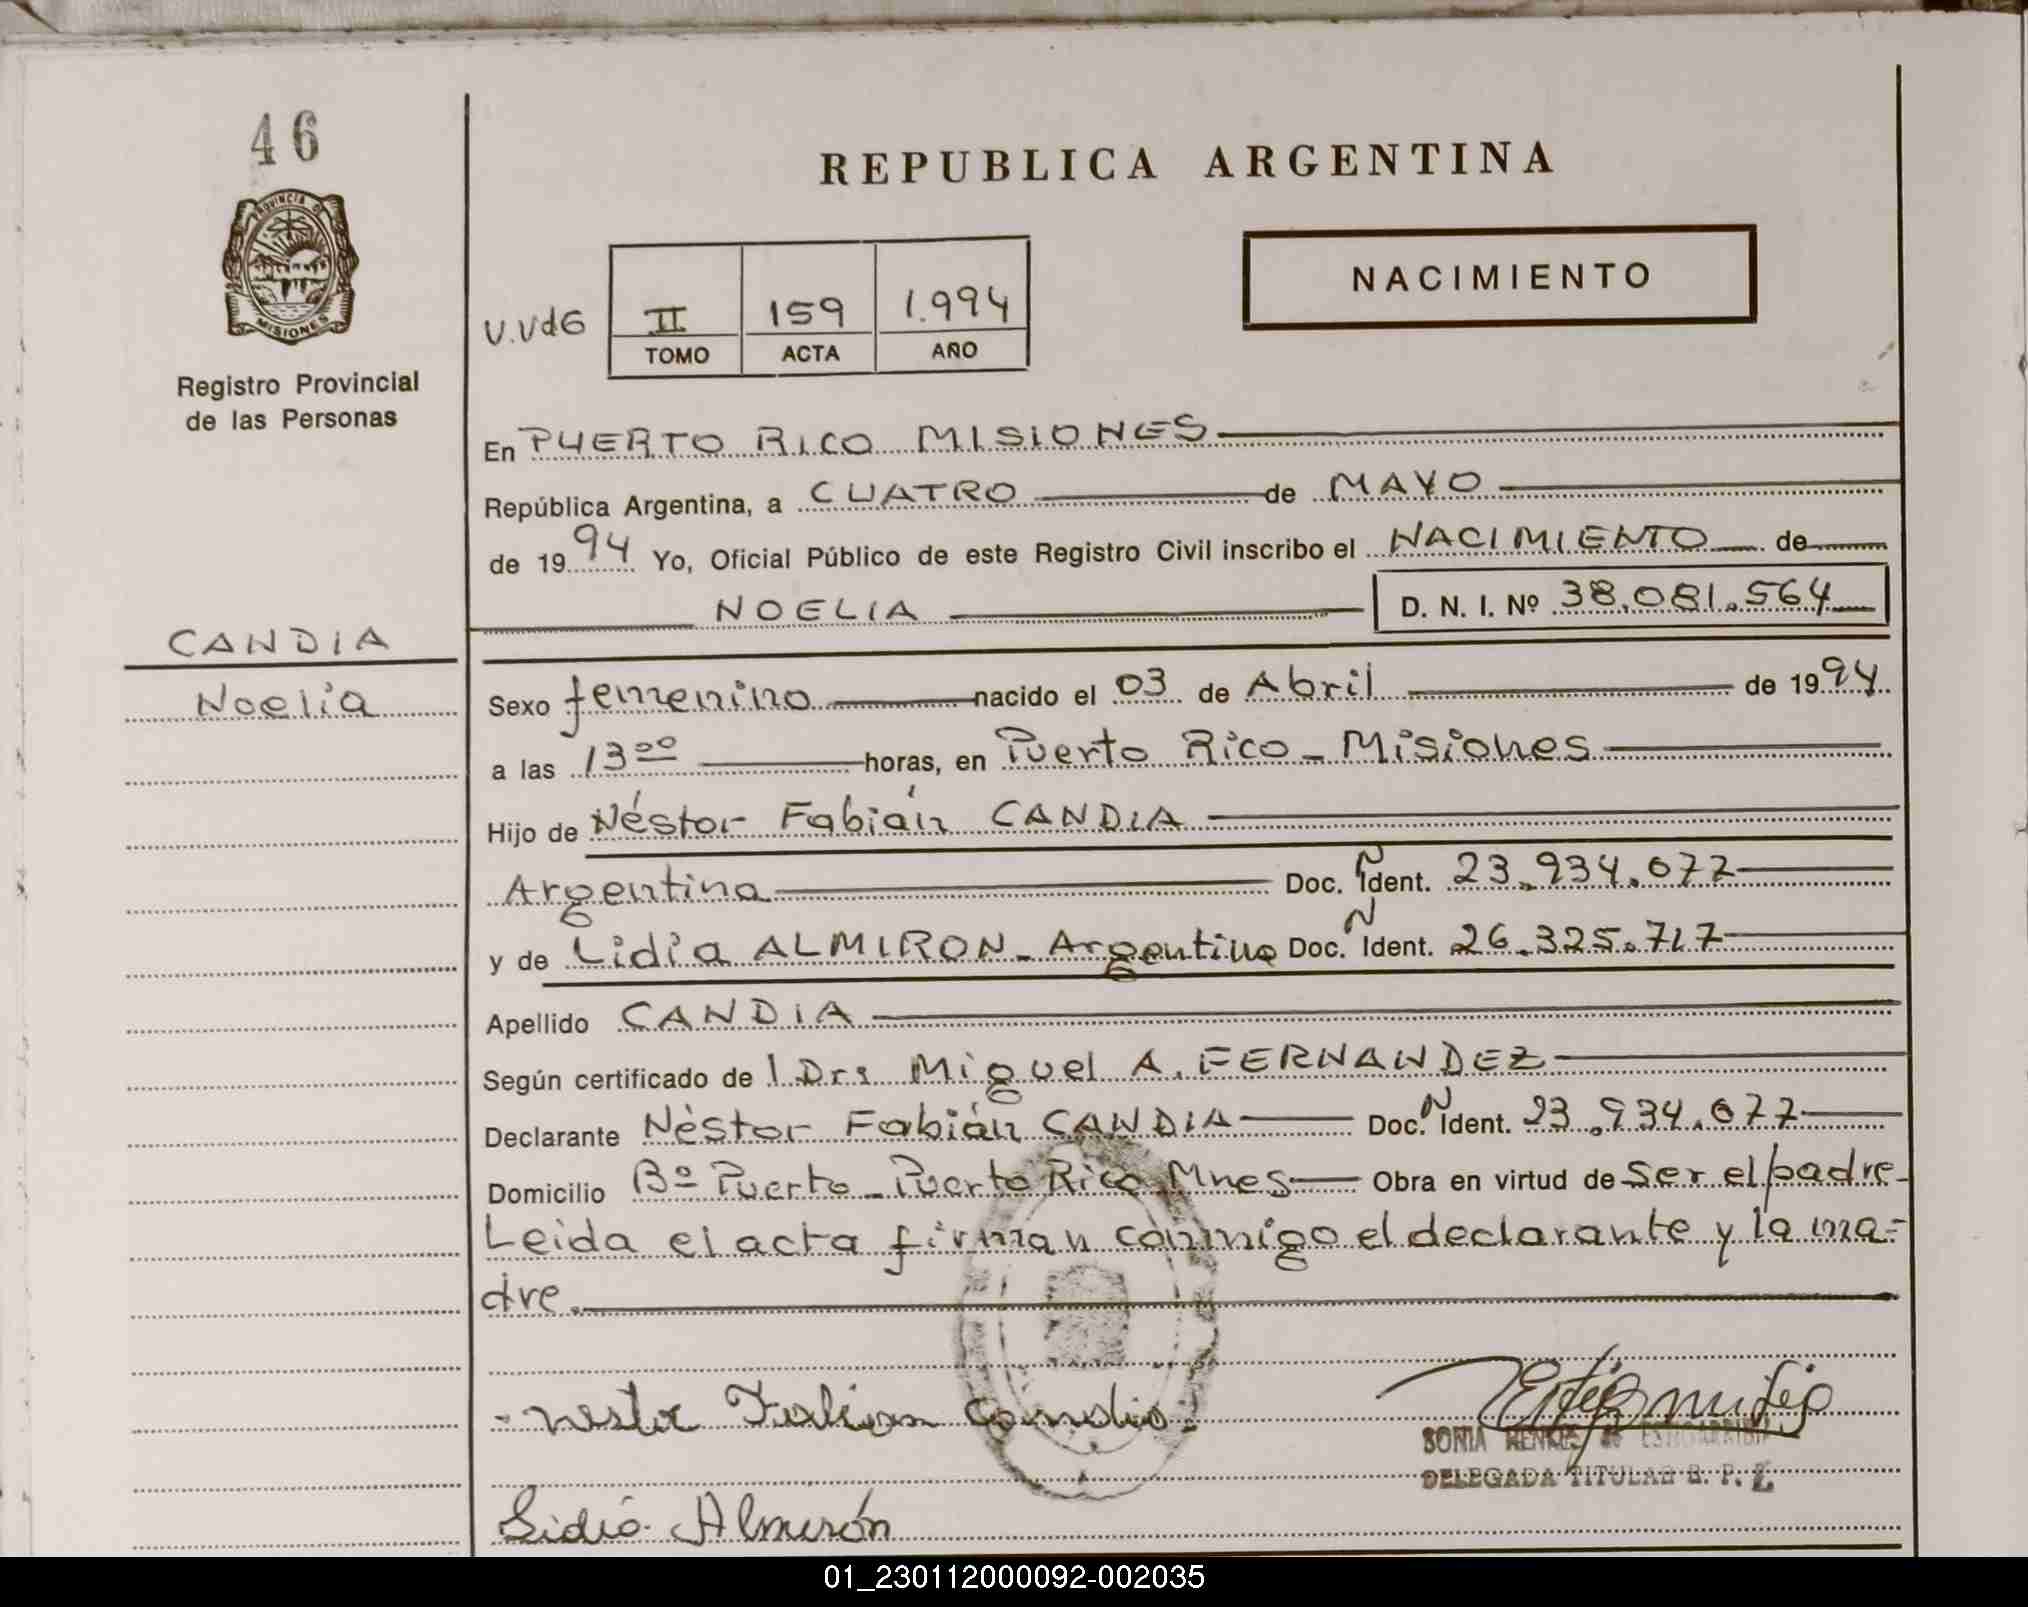 46
PROVINCIA DE
MISIONES
Registro Provincial
de las Personas
CANDIA
Noelia
REPUBLICA ARGENTINA
NACIMIENTO
V.VdG II 159 1.994
TOMO ACTA AÑO
En PUERTO RICO MISIONES
República Argentina, a CUATRO de MAYO
de 1994 Yo, Oficial Público de este Registro Civil inscribo el NACIMIENTO de
NOELIA D. N. I. Nº 38.081.564
Sexo femenino nacido el 03 de Abril de 1994
a las 13 00 horas, en Puerto Rico - Misiones
Hijo de Néstor Fabián CANDIA
Argentina Doc. N Ident. 23.934.077
y de Lidia ALMIRON - Argentina Doc. N Ident. 26.325.717
Apellido CANDIA
Según certificado de 1 Dr: Miguel A. FERNANDEZ
Declarante Nèstor Fabián CANDIA Doc. N Ident. 23.934.077
Domicilio Bº Puerto - Puerto Rico Mnes Obra en virtud de ser el padre-
Leida el acta firman conmigo el declarante y la ma=
dre.
Nestor Fabian Candia
SONIA
DELEGADA TITULAR R. P. P.
Lidia Almirón
01_230112000092-002035